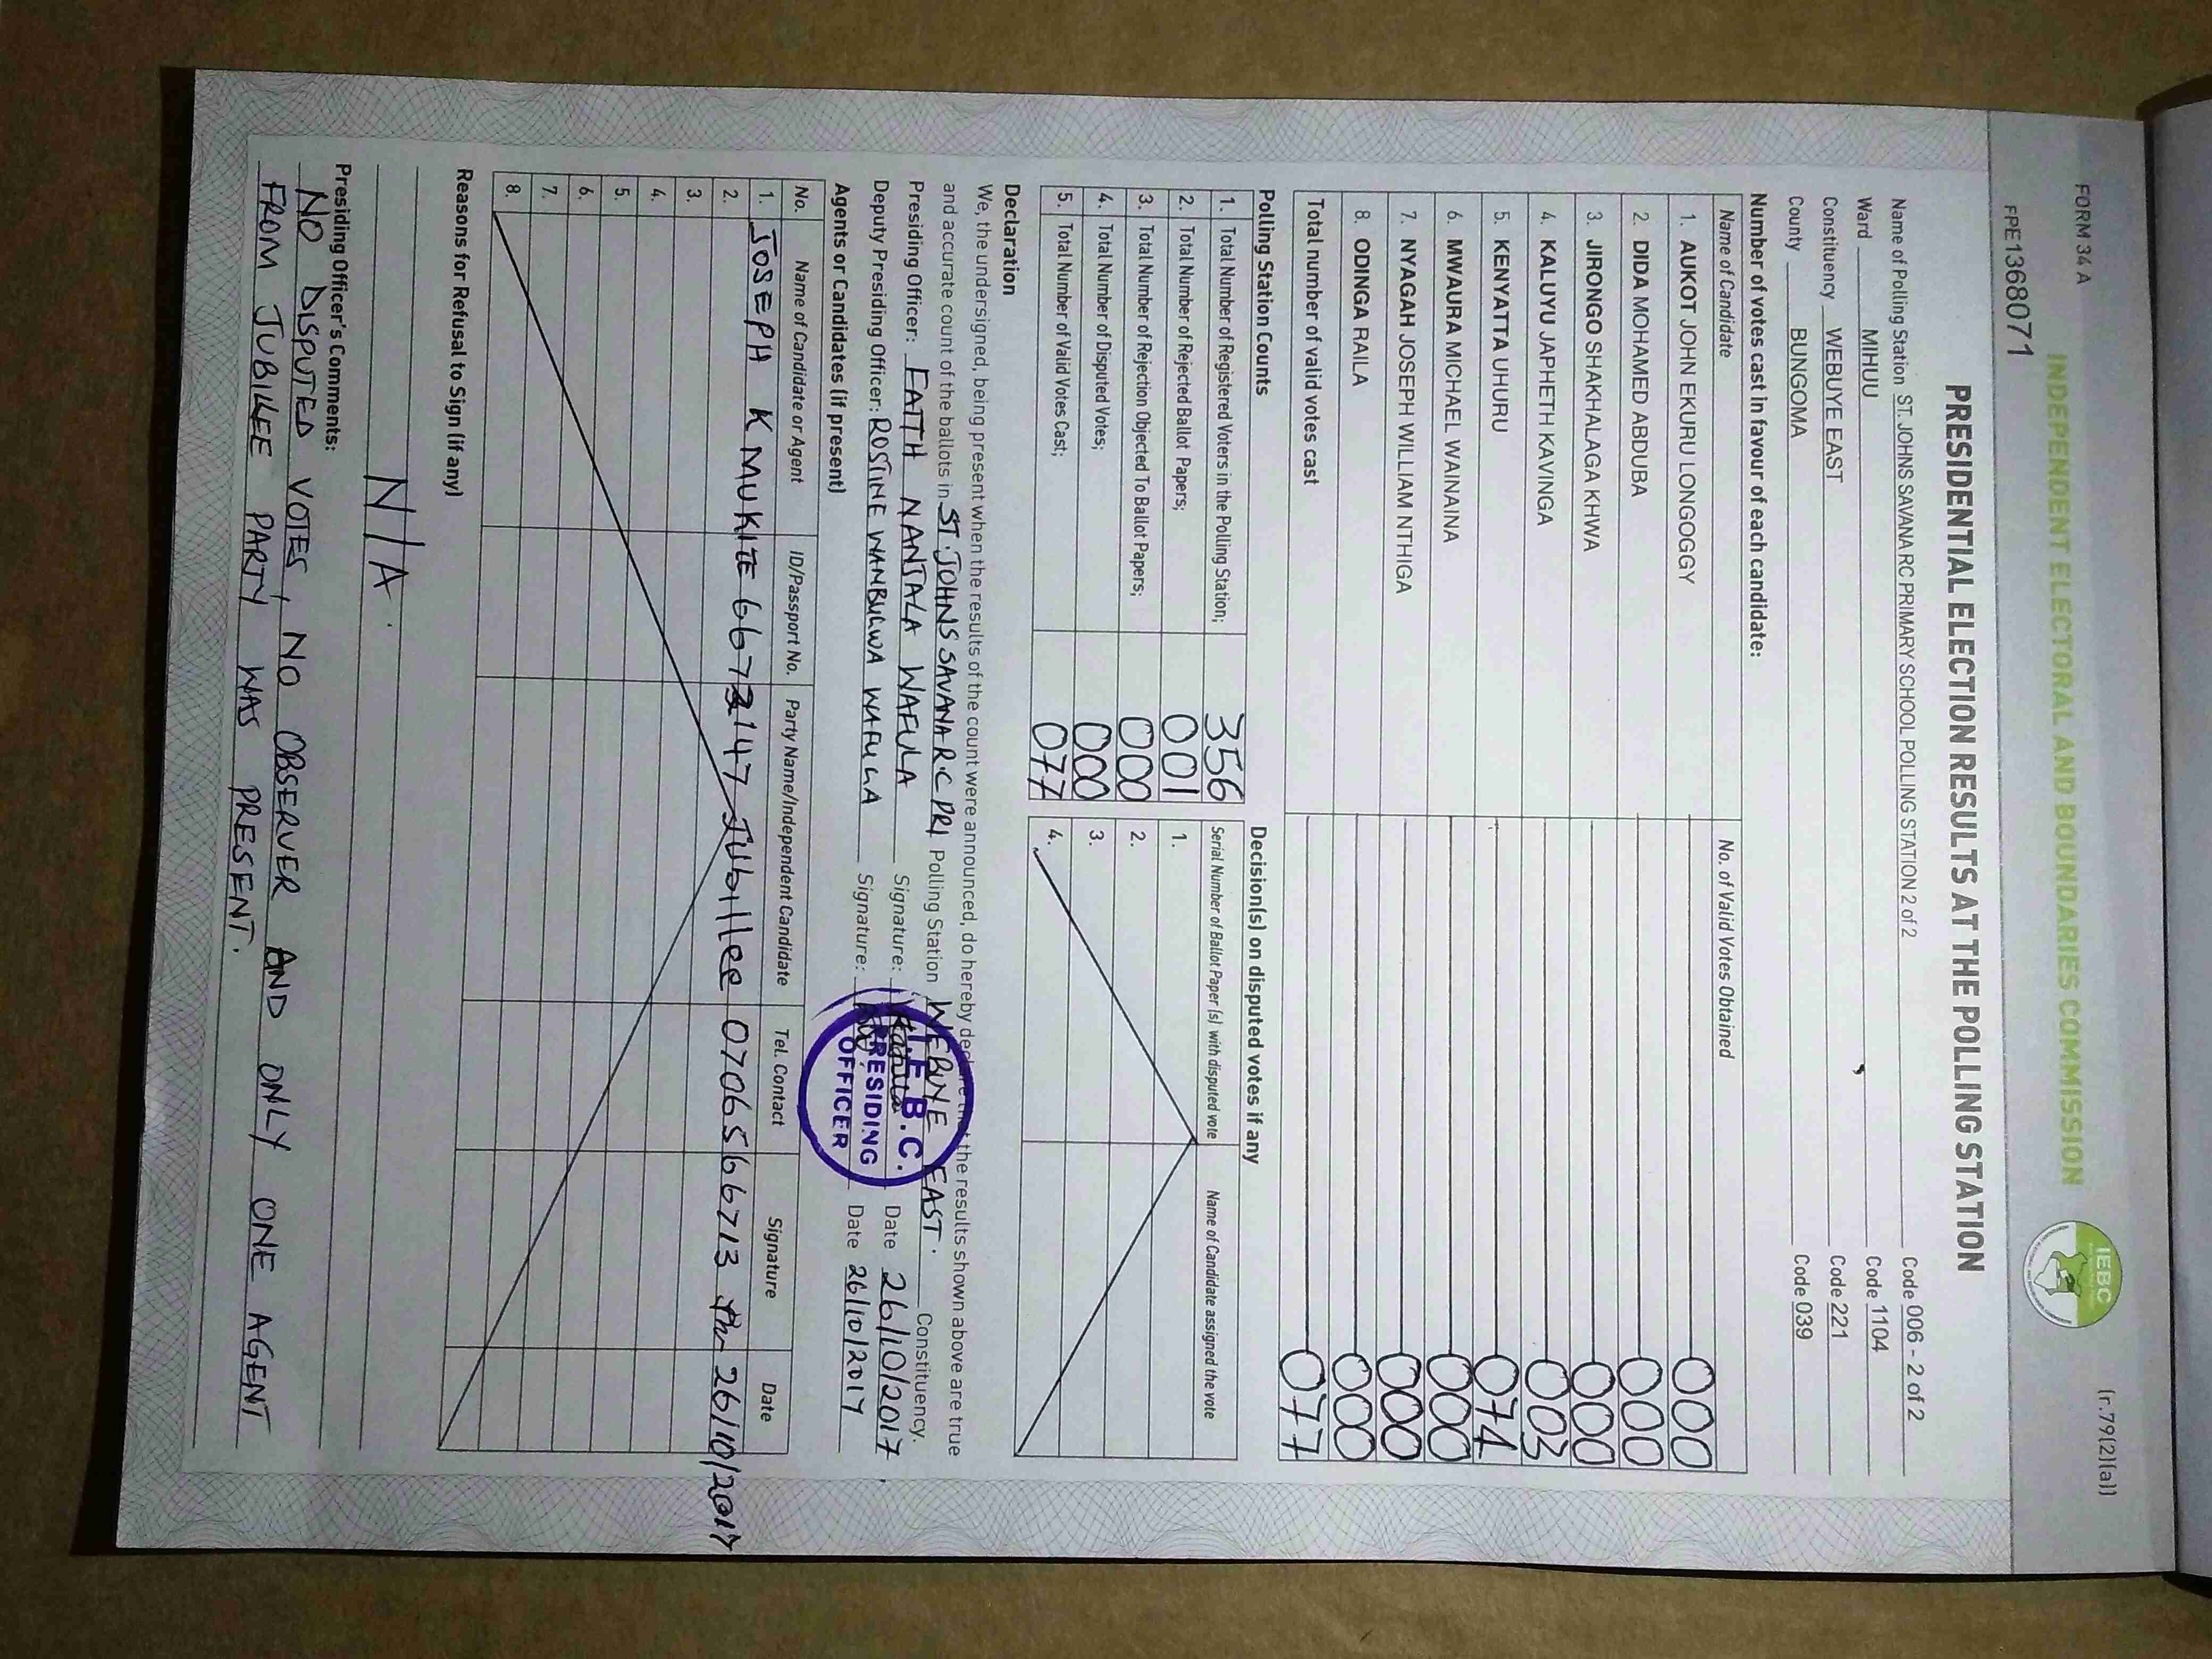 FORM 34 A
(r.79(2)(a))
INDEPENDENT ELECTORAL AND BOUNDARIES COMMISSION
IEBC
FPE1368071
PRESIDENTIAL ELECTION RESULTS AT THE POLLING STATION
Name of Polling Station ST. JOHNS SAVANA RC PRIMARY SCHOOL POLLING STATION 2 of 2 Code 006 - 2 of 2
Ward MIHUU Code 1104
Constituency WEBUYE EAST Code 221
County BUNGOMA Code 039
Number of votes cast in favour of each candidate:
Name of Candidate No. of Valid Votes Obtained
1. AUKOT JOHN EKURU LONGOGGY 000
2. DIDA MOHAMED ABDUBA 000
3. JIRONGO SHAKHALAGA KHWA 000
4. KALUYU JAPHETH KAVINGA 003
5. KENYATTA UHURU 074
6. MWAURA MICHAEL WAINAINA 000
7. NYAGAH JOSEPH WILLIAM NTHIGA 000
8. ODINGA RAILA 000
Total number of valid votes cast 077
Polling Station Counts
1. Total Number of Registered Voters in the Polling Station; 356
2. Total Number of Rejected Ballot Papers; 001
3. Total Number of Rejection Objected To Ballot Papers; 000
4. Total Number of Disputed Votes; 000
5. Total Number of Valid Votes Cast; 077
Decision(s) on disputed votes if any
Serial Number of Ballot Paper (s) with disputed vote Name of Candidate assigned the vote
1.
2.
3.
4.
Declaration
We, the undersigned, being present when the results of the count were announced, do hereby declare that the results shown above are true
and accurate count of the ballots in ST. JOHNS SAVANA R.C PRI Polling Station WEBUYE EAST. Constituency.
Presiding Officer: FAITH NANJALA WAFULA Signature: Date 26/10/2017.
Deputy Presiding Officer: ROSTINE WANBULWA WAFULA Signature: Date 26/10/2017
I.E.B.C.
PRESIDING
OFFICER
Agents or Candidates (if present)
No. Name of Candidate or Agent ID/Passport No. Party Name/Independent Candidate Tel. Contact Signature Date
1. JOSEPH K MUKITE 6672147 Jubillee 0706566713 26/10/2017
2.
3.
4.
5.
6.
7.
8.
Reasons for Refusal to Sign (if any)
N/A.
Presiding Officer's Comments:
NO DISPUTED VOTES, NO OBSERVER AND ONLY ONE AGENT
FROM JUBILEE PARTY WAS PRESENT.